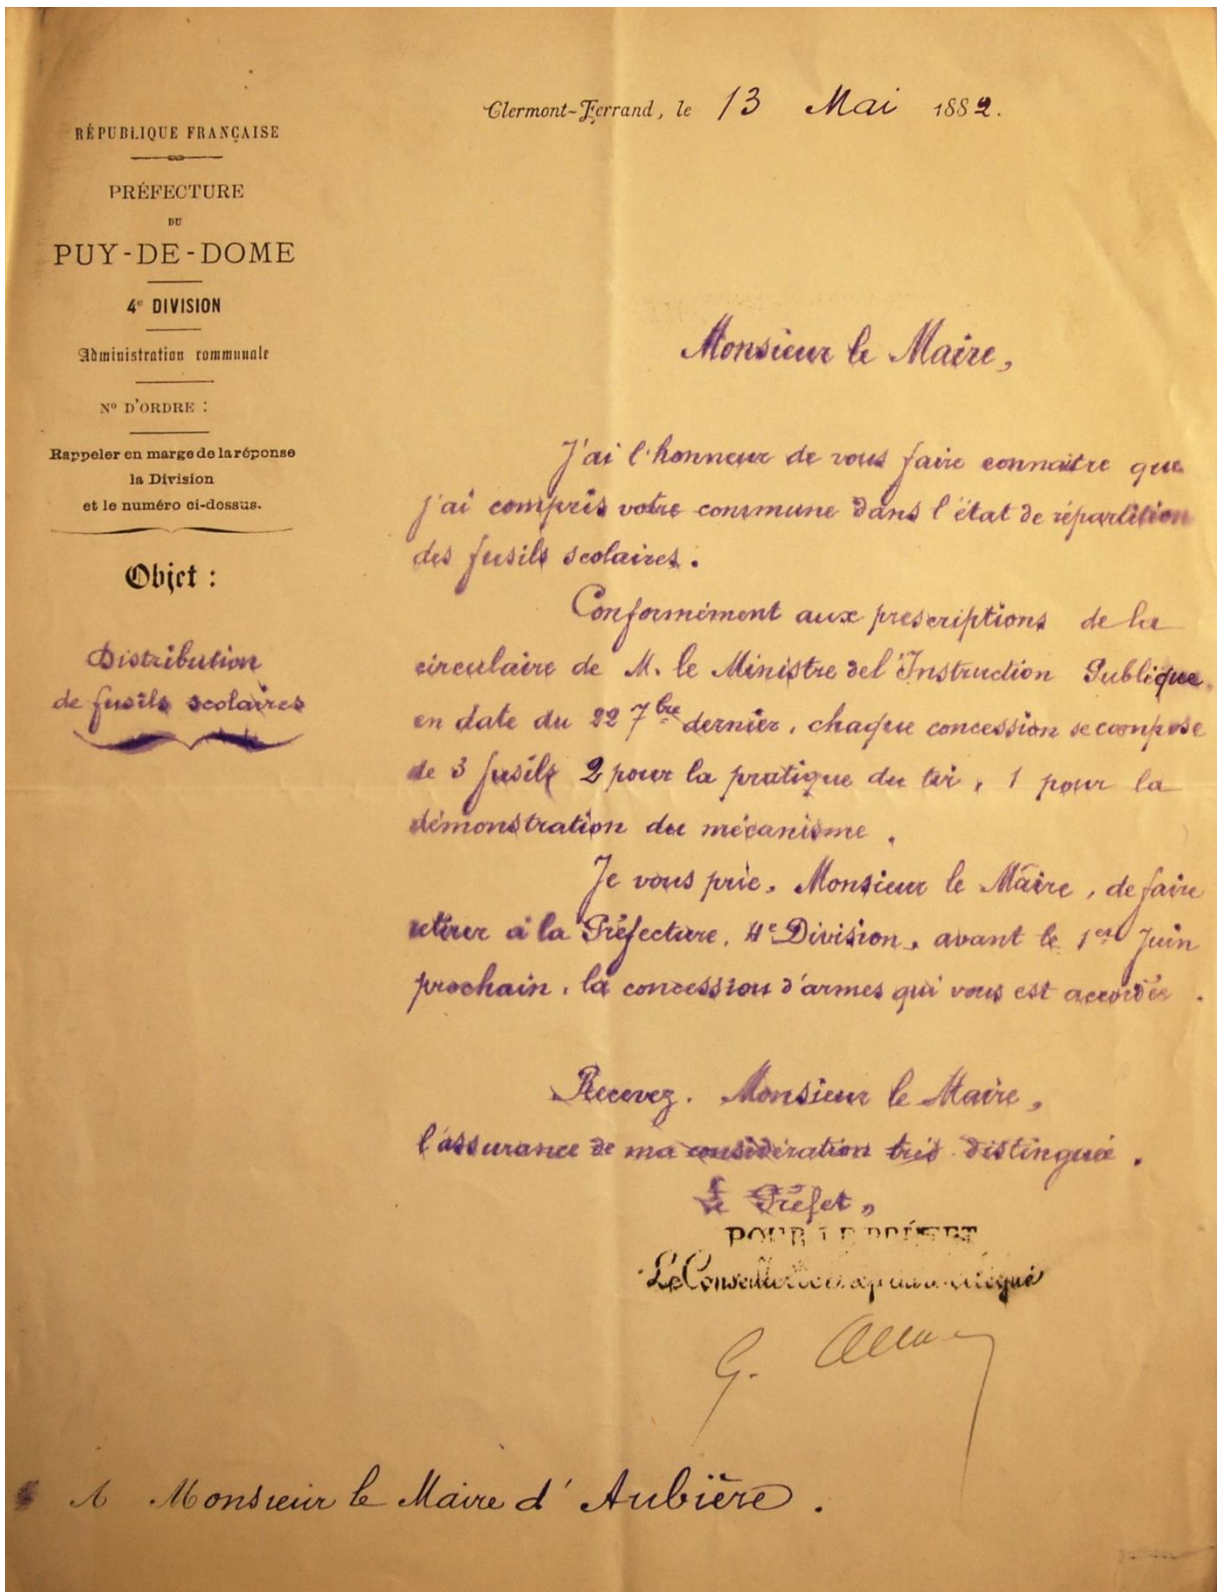 Clermont-Ferrand, le 13 Mai 1882.
RÉPUBLIQUE FRANÇAISE
PRÉFECTURE
DU
PUY-DE-DOME
4e DIVISION
Administration communale
No D'ORDRE :
Rappeler en marge de la réponse
la Division
et le numéro ci-dessus.
Objet :
Distribution
de fusils scolaires
Monsieur le Maire,
J'ai l'honneur de vous faire connaître que
j'ai compris votre commune dans l'état de répartition
des fusils scolaires.
Conformément aux prescriptions de la
circulaire de M. le Ministre de l'Instruction Publique,
en date du 22 7bre dernier, chaque concession se compose
de 3 fusils 2 pour la pratique du tir, 1 pour la
démonstration du mécanisme.
Je vous prie, Monsieur le Maire, de faire
retirer à la Préfecture, 4e Division, avant le 1er Juin
prochain, la concession d'armes qui vous est accordée.
Recevez, Monsieur le Maire,
l'assurance de ma considération très distinguée.
Le Préfet,
POUR LE PRÉFET
Le Conseiller délégué
G.
A Monsieur le Maire d'Aubière.